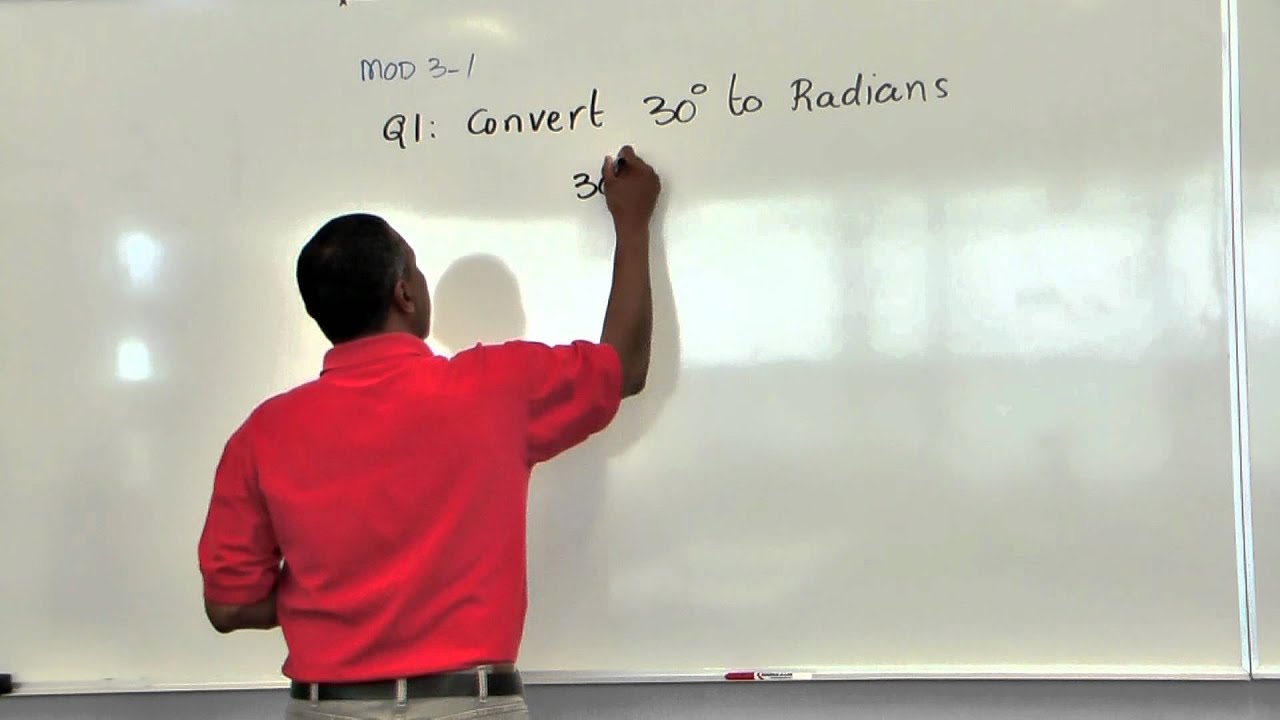 MOD 3-1
Q1: Convert 30° to Radians
30